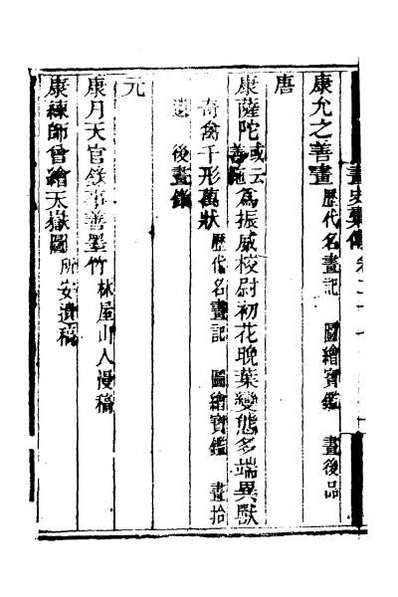 畫史彙傳 卷二十七
康允之善畫 歷代名畫記 圖繪寶鑑 畫後品
唐
康薩陀 或云善陁 爲振威校尉初花晚葉變態多端異獸
奇禽千形萬狀 歷代名畫記 圖繪寶鑑 畫拾
遺 後畫錄
元
康月天官錄事善墨竹 林屋山人漫稿
康鍊師曾繪天嶽圖 所安遺稿